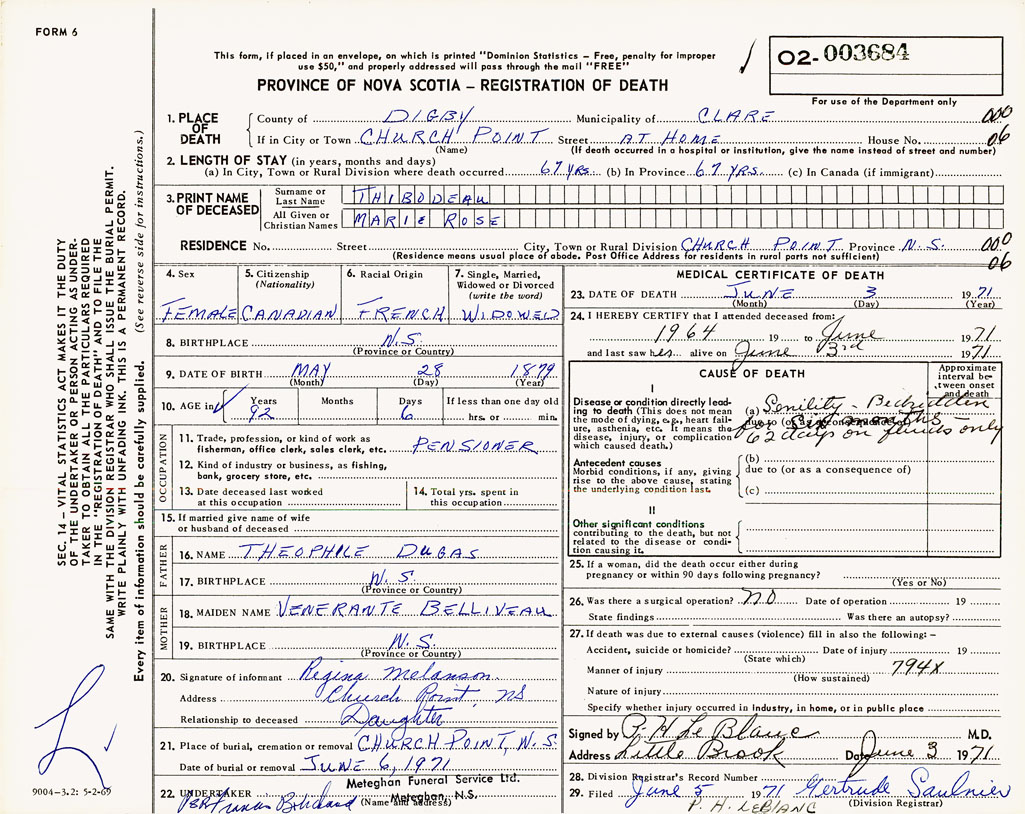 FORM 6
This form, if placed in an envelope, on which is printed "Dominion Statistics – Free, penalty for improper
use $50," and properly addressed will pass through the mail "FREE"
PROVINCE OF NOVA SCOTIA – REGISTRATION OF DEATH
O2- 003684
For use of the Department only
SEC. 14 – VITAL STATISTICS ACT MAKES IT THE DUTY
OF THE UNDERTAKER OR PERSON ACTING AS UNDER-
TAKER TO OBTAIN ALL THE PARTICULARS REQUIRED
IN THE "REGISTRATION OF DEATH" AND TO FILE THE
SAME WITH THE DIVISION REGISTRAR WHO SHALL ISSUE THE BURIAL PERMIT.
WRITE PLAINLY WITH UNFADING INK. THIS IS A PERMANENT RECORD.
Every item of information should be carefully supplied. (See reverse side for instructions.)
1. PLACE OF DEATH
County of DIGBY Municipality of CLARE 000
If in City or Town CHURCH POINT Street AT HOME House No. 06
(Name) (If death occurred in a hospital or institution, give the name instead of street and number)
2. LENGTH OF STAY (in years, months and days)
(a) In City, Town or Rural Division where death occurred 67 YRS. (b) In Province 67 YRS. (c) In Canada (if immigrant)
3. PRINT NAME OF DECEASED
Surname or Last Name THIBODEAU
All Given or Christian Names MARIE ROSE
RESIDENCE No. Street City, Town or Rural Division CHURCH POINT Province N.S. 000
(Residence means usual place of abode. Post Office Address for residents in rural parts not sufficient) 06
4. Sex FEMALE
5. Citizenship (Nationality) CANADIAN
6. Racial Origin FRENCH
7. Single, Married, Widowed or Divorced (write the word) WIDOWED
8. BIRTHPLACE N.S.
(Province or Country)
9. DATE OF BIRTH MAY 28 1879
(Month) (Day) (Year)
10. AGE in Years 92 Months Days 6 If less than one day old hrs. or min.
OCCUPATION
11. Trade, profession, or kind of work as
fisherman, office clerk, sales clerk, etc. PENSIONER
12. Kind of industry or business, as fishing,
bank, grocery store, etc.
13. Date deceased last worked
at this occupation
14. Total yrs. spent in
this occupation
15. If married give name of wife
or husband of deceased
FATHER
16. NAME THEOPHILE DUGAS
17. BIRTHPLACE N.S.
(Province or Country)
MOTHER
18. MAIDEN NAME VENERANTE BELLIVEAU
19. BIRTHPLACE N.S.
(Province or Country)
20. Signature of informant Regina Melanson
Address Church Point, NS
Relationship to deceased Daughter
21. Place of burial, cremation or removal CHURCH POINT, N.S.
Date of burial or removal JUNE 6, 1971
Meteghan Funeral Service Ltd.
22. UNDERTAKER Meteghan, N.S.
(Name and address)
9004-3.2: 5-2-69
MEDICAL CERTIFICATE OF DEATH
23. DATE OF DEATH JUNE 3 1971
(Month) (Day) (Year)
24. I HEREBY CERTIFY that I attended deceased from:
1964 19 to June 1971
and last saw her alive on June 3rd 1971
CAUSE OF DEATH
Approximate interval between onset and death
I
Disease or condition directly leading to death (This does not mean the mode of dying, e.g., heart failure, asthenia, etc. It means the disease, injury, or complication which caused death.)
(a) Senility – Bedridden
due to (or as a consequence of)
for months
62 days on fluids only
Antecedent causes
Morbid conditions, if any, giving rise to the above cause, stating the underlying condition last.
(b)
due to (or as a consequence of)
(c)
II
Other significant conditions
contributing to the death, but not related to the disease or condition causing it.
25. If a woman, did the death occur either during
pregnancy or within 90 days following pregnancy?
(Yes or No)
26. Was there a surgical operation? no Date of operation 19
State findings Was there an autopsy?
27. If death was due to external causes (violence) fill in also the following: –
Accident, suicide or homicide? Date of injury 19
(State which)
Manner of injury 794X
(How sustained)
Nature of injury
Specify whether injury occurred in industry, in home, or in public place
Signed by P. H. Le Blanc M.D.
Address Little Brook Date June 3 1971
28. Division Registrar's Record Number
29. Filed June 5 1971 Gertrude Saulnier
P. H. LEBLANC (Division Registrar)